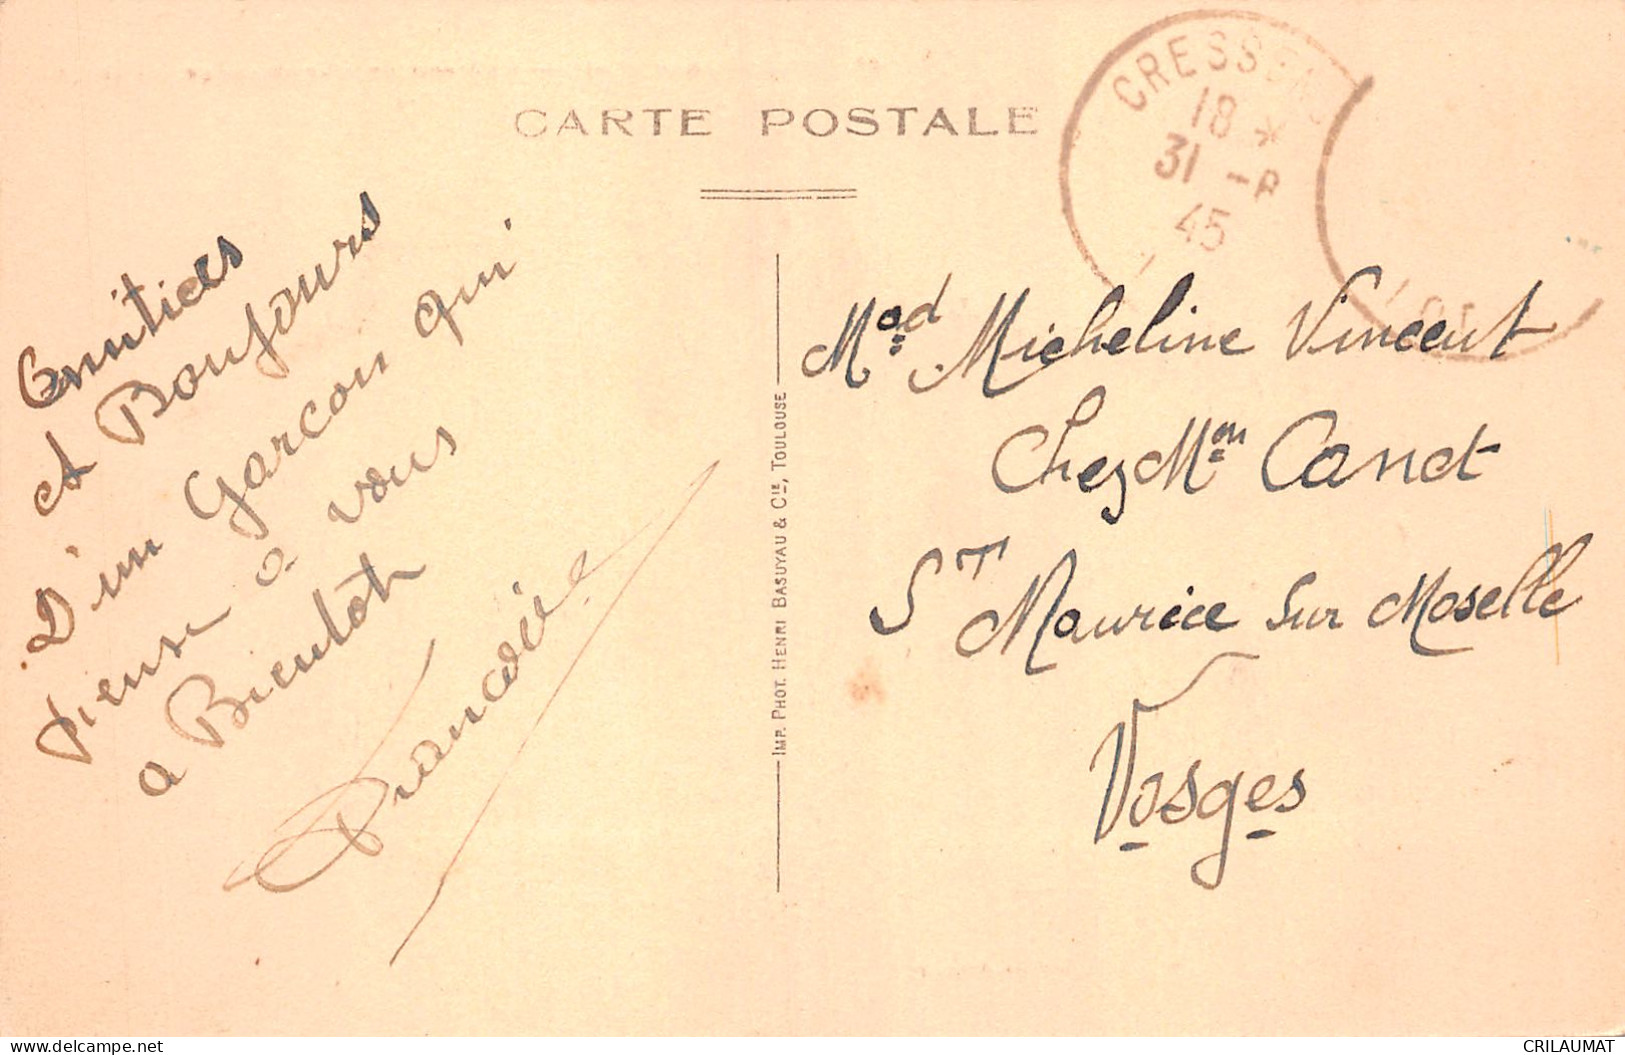 CARTE POSTALE
18 *
31 -8
45
Amitiées
et Bonjours
D'un Garçon qui
pense a vous
a Bientôt
IMP. PHOT. HENRI BASUYAU & CIE, TOULOUSE
Mad Micheline Vincent
Chez Mon Canet
ST Maurice sur Moselle
Vosges
delcampe.net
CRILAUMAT